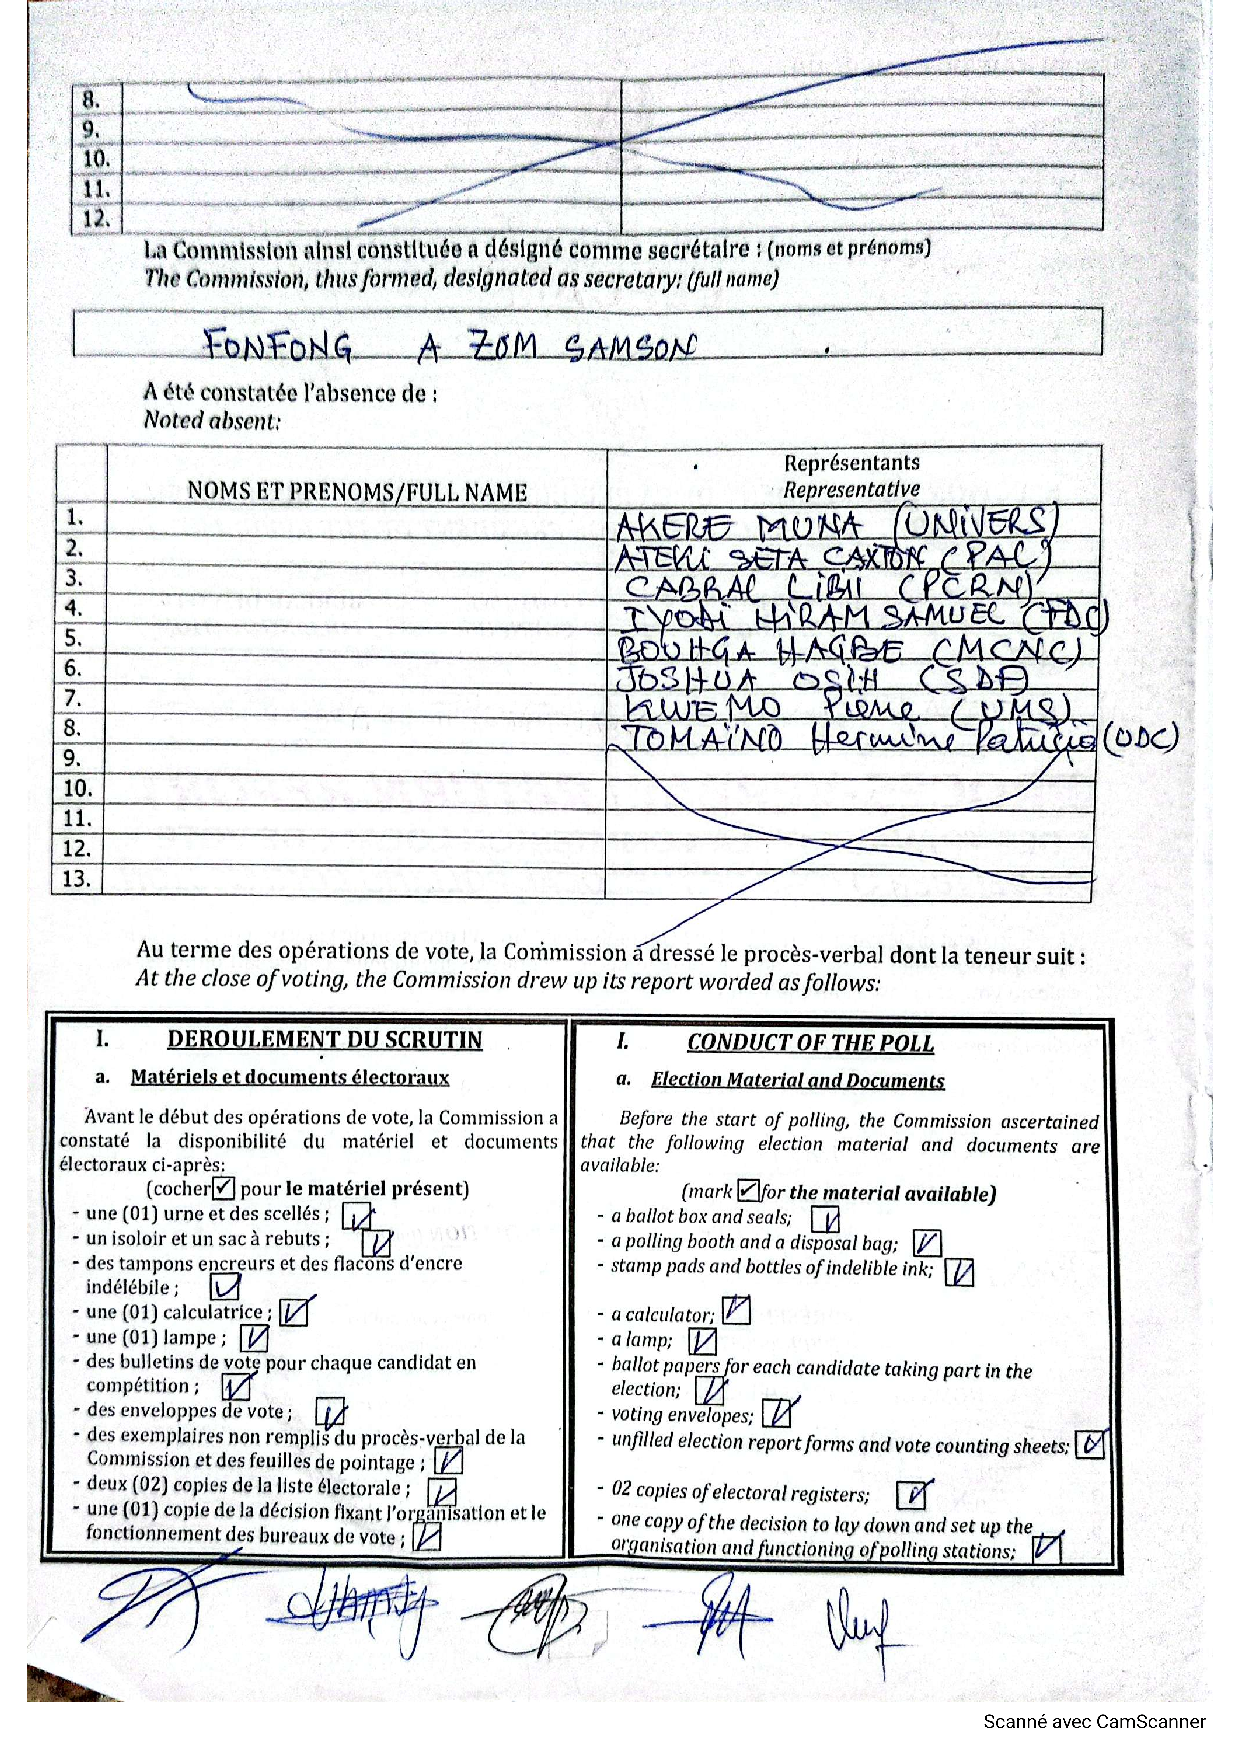 8.
9.
10.
11.
12.
La Commission ainsi constituée a désigné comme secrétaire : (noms et prénoms)
The Commission, thus formed, designated as secretary: (full name)
FONFONG A ZOM SAMSON
A été constatée l'absence de :
Noted absent:
NOMS ET PRENOMS/FULL NAME
Représentants
Representative
1. AKERE MUNA (UNIVERS)
2. ATEKI SETA CAXTON (PAL)
3. CABRAL LIBII (PCRN)
4. IYODI HIRAM SAMUEL (FDC)
5. BOUHGA HAGBE (MCNC)
6. JOSHUA OSIH (SDF)
7. KWEMO Pierre (UMS)
8. TOMAÏNO Hermine Patricia (UDC)
9.
10.
11.
12.
13.
Au terme des opérations de vote, la Commission a dressé le procès-verbal dont la teneur suit :
At the close of voting, the Commission drew up its report worded as follows:
I. DEROULEMENT DU SCRUTIN
a. Matériels et documents électoraux
Avant le début des opérations de vote, la Commission a
constaté la disponibilité du matériel et documents
électoraux ci-après:
(cocher ✓ pour le matériel présent)
- une (01) urne et des scellés ;
- un isoloir et un sac à rebuts ;
- des tampons encreurs et des flacons d'encre
indélébile ;
- une (01) calculatrice ;
- une (01) lampe ;
- des bulletins de vote pour chaque candidat en
compétition ;
- des enveloppes de vote ;
- des exemplaires non remplis du procès-verbal de la
Commission et des feuilles de pointage ;
- deux (02) copies de la liste électorale ;
- une (01) copie de la décision fixant l'organisation et le
fonctionnement des bureaux de vote ;
I. CONDUCT OF THE POLL
a. Election Material and Documents
Before the start of polling, the Commission ascertained
that the following election material and documents are
available:
(mark ✓ for the material available)
- a ballot box and seals;
- a polling booth and a disposal bag;
- stamp pads and bottles of indelible ink;
- a calculator;
- a lamp;
- ballot papers for each candidate taking part in the
election;
- voting envelopes;
- unfilled election report forms and vote counting sheets;
- 02 copies of electoral registers;
- one copy of the decision to lay down and set up the
organisation and functioning of polling stations;
Scanné avec CamScanner